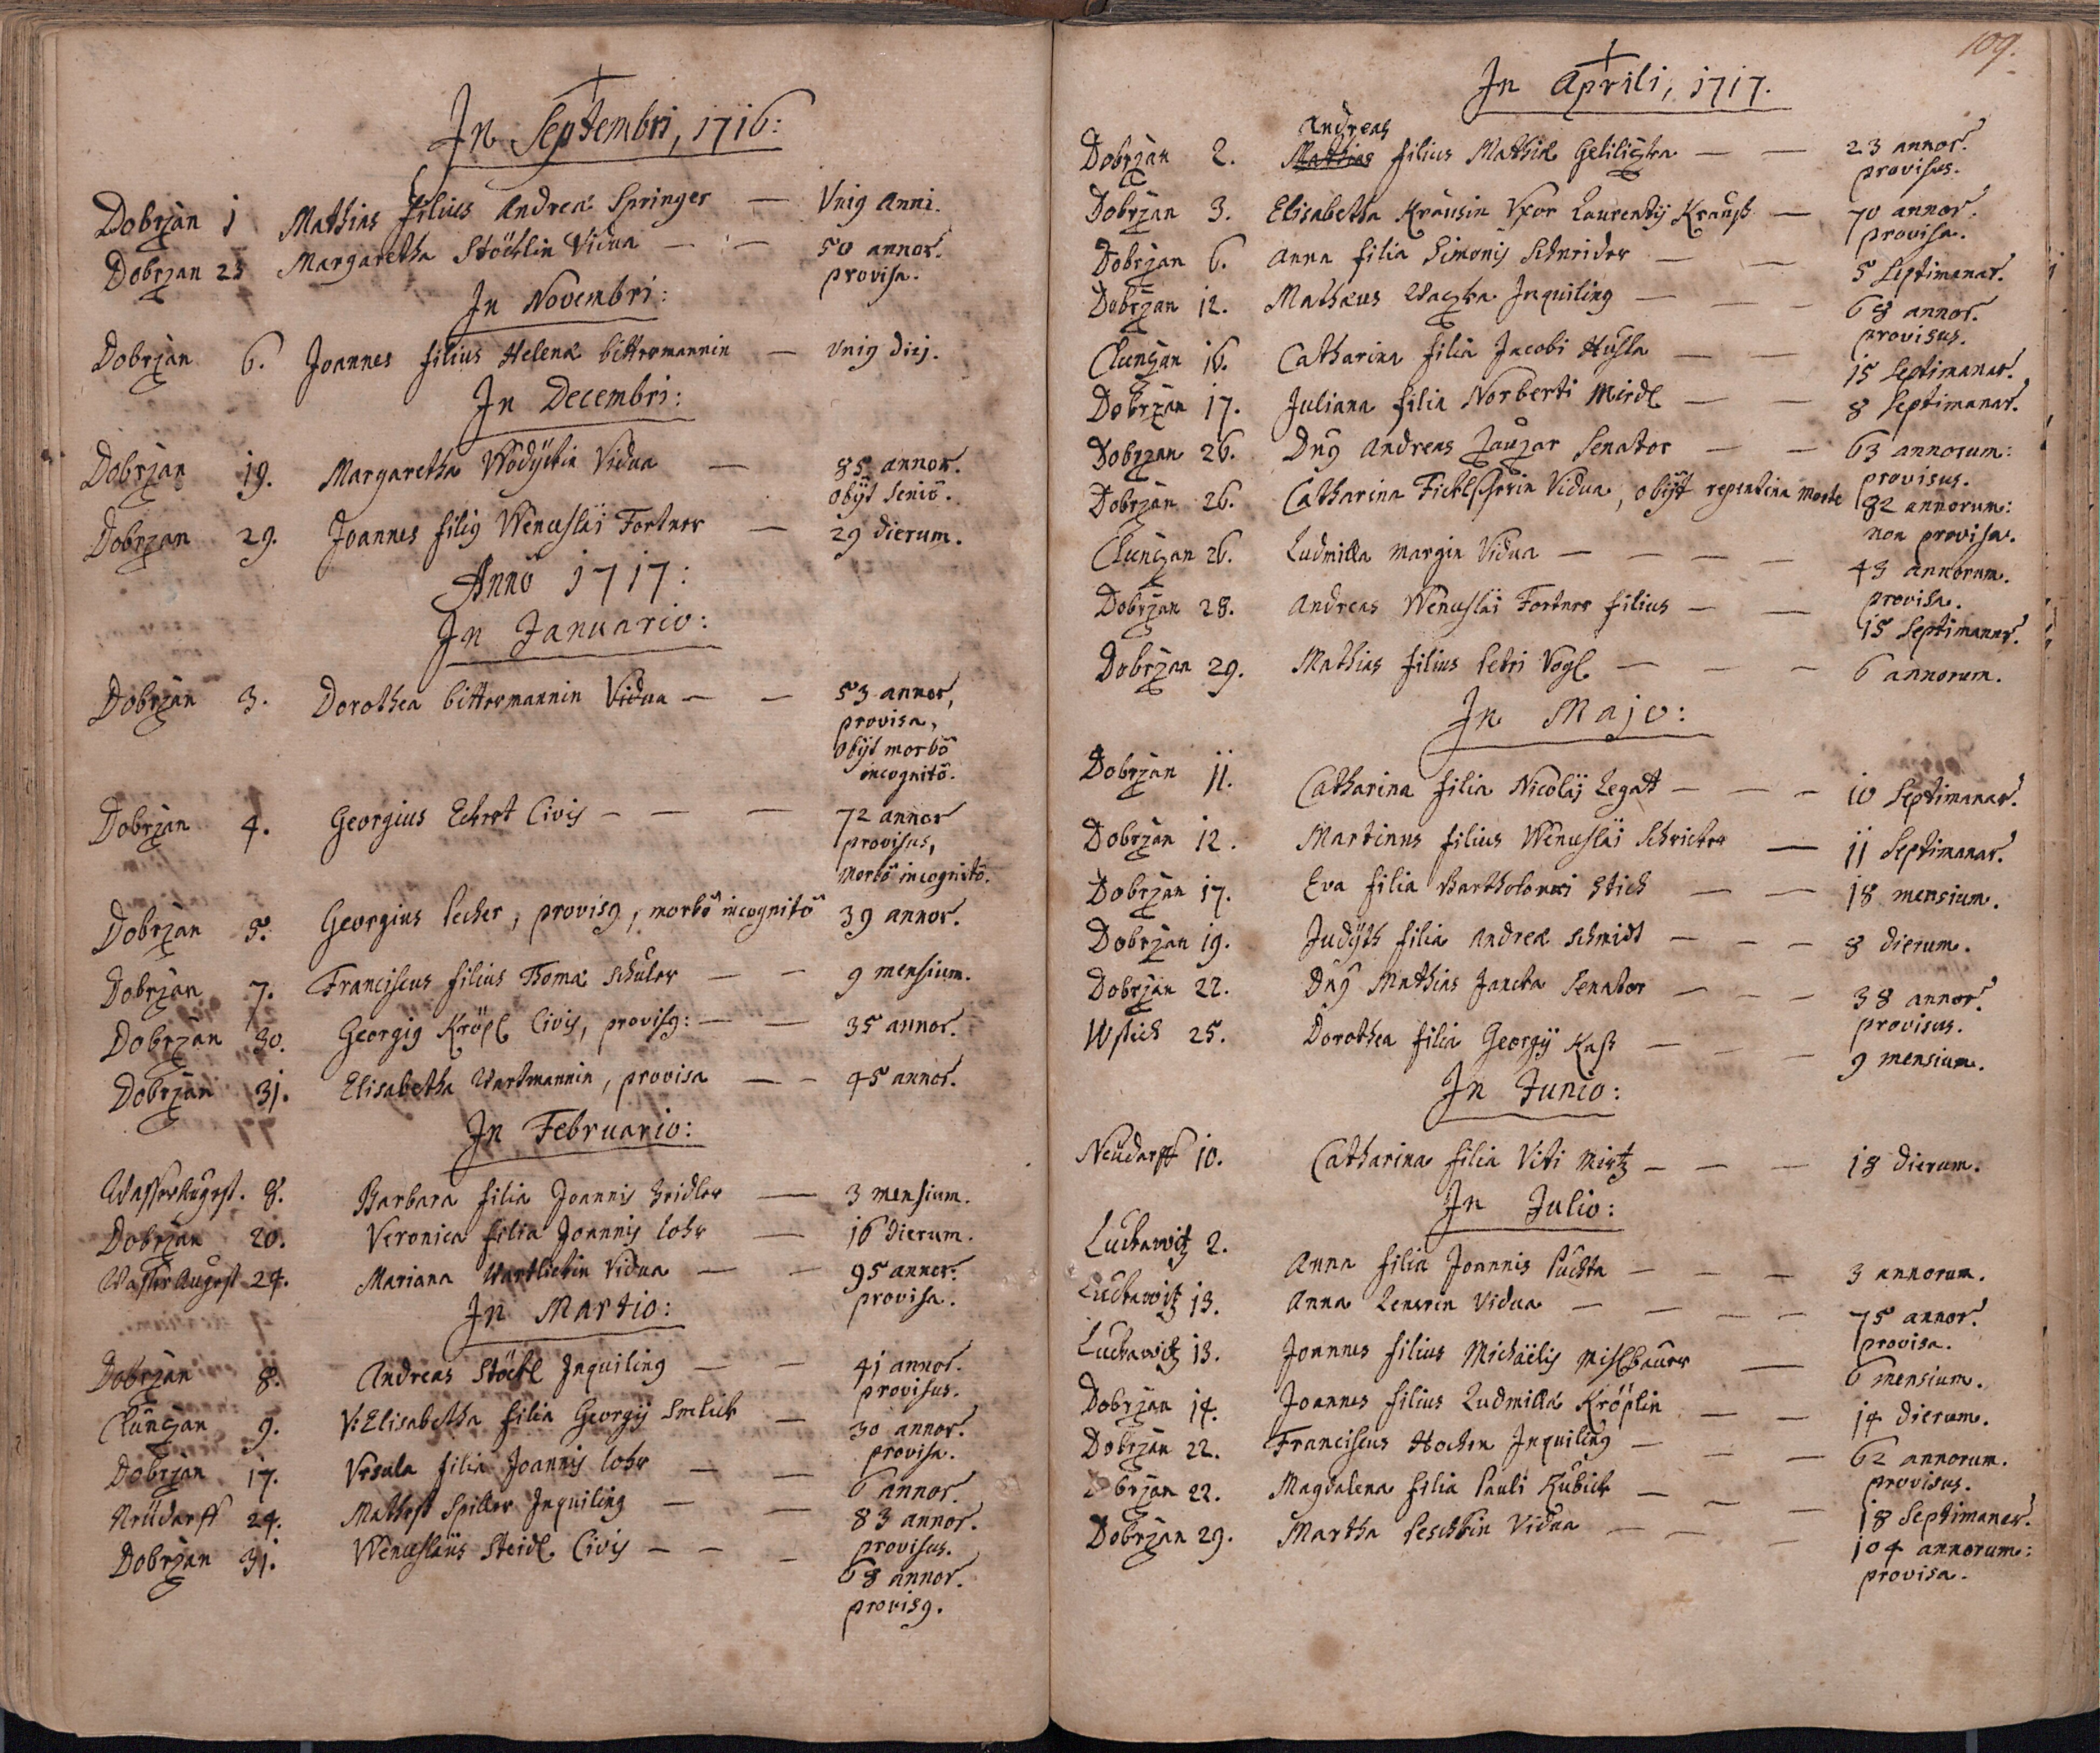 In Septembri, 1716:
Dobrzan 1 Mathias filius Andreæ Springer — Vnig Anni.
Dobrzan 25 Margaretha Stöcklin Vidua — — 50 annor.
provisa.
In Novembri:
Dobrzan 6. Joannes filius Helenæ bittermannin — Vnig diej.
In Decembri:
Dobrzan 19. Margaretha Vidua — 85 annor.
obijt seniô.
Dobrzan 29. Joannes filig Wenceslai Fortner — 29 dierum.
Annô 1717:
In Januario:
Dobrzan 3. Dorothea bittermannin Vidua — — 53 annor,
provisa,
obijt morbô
incognitô.
Dobrzan 4. Georgius Eckert Civis — — — 72 annor
provisus,
morbô incognitô.
Dobrzan 5. Georgius Pecher, provisg, morbô incognitô 39 annor.
Dobrzan 7. Franciscus filius Thomæ Schuler — — 9 mensium.
Dobrzan 30. Georgig Kröpl Civis, provisg: — — 35 annor.
Dobrzan 31. Elisabetha Wartmannin, provisa — — 45 annor.
In Februario:
WasserAugest. 8. Barbara filia Joannis — 3 mensium.
Dobrzan 20. Veronica filia Joannis Lohr — 16 dierum.
WasserAugest 24. Mariana Vidua — — 95 annor:
provisa.
In Martio:
Dobrzan 8. Andreas Stöckl Inquiling — — 41 annor.
provisus.
Clunczan 9. V: Elisabetha filia Georgij Smlick — 30 annor.
provisa.
Dobrzan 17. Vrsula filia Joannis Lohr — — 6 annor.
Neudorff 24. Spiller Inquiling — — 83 annor.
provisus.
Dobrzan 31. Wenceslaus Steidl Civis — — — 68 annor.
provisg.
109.
In Aprili, 1717.
Andreas
Dobrzan 2. Mathias filius Mathiæ — — 23 annor.
provisus.
Dobrzan 3. Elisabetha Krausin Vxor Laurentij Krauß — 70 annor.
provisa.
Dobrzan 6. Anna filia Simonis Schneider — — 5 Septimanar.
Dobrzan 12. Mathæus Inquiling — — — 68 annor.
provisus.
Clunczan 16. Catharina filia Jacobi Husla — — 15 Septimanar.
Dobrzan 17. Juliana filia Norberti Meidl — — 8 Septimanar.
Dobrzan 26. Dng Andreas Senator — — 63 annorum:
provisus.
Dobrzan 26. Catharina Vidua, obijt repentina morte 82 annorum:
non provisa.
Clunczan 26. Ludmilla Margin Vidua — — — 43 annorum.
provisa.
Dobrzan 28. Andreas Wenceslai Fortner filius — — 15 Septimanar.
Dobrzan 29. Mathias filius Petri Vogl — — — 6 annorum.
In Majo:
Dobrzan 11. Catharina filia Nicolaj Legat — — — 10 Septimanar.
Dobrzan 12. Martinus filius Wenceslai Schricker — 11 Septimanar.
Dobrzan 17. Eva filia Bartholomæi Stich — — 18 mensium.
Dobrzan 19. Judijth filia Andreæ Schmidt — — — 8 dierum.
Dobrzan 22. Dng Mathias Jancka Senator — — — 38 annor.
provisus.
Wstich 25. Dorothea filia Georgij Kaß — — — 9 mensium.
In Junio:
Neudarff 10. Catharina filia Viti Mirtz — — — 18 dierum.
In Julio:
Luckawitz 2. Anna filia Joannis Puchta — — — 3 annorum.
Luckawitz 13. Anna Vidua — — — — 75 annor.
provisa.
Luckawitz 13. Joannes filius Michaëlis Mislbaurr — 6 mensium.
Dobrzan 14. Joannes filius Ludmillæ Kröplin — — 14 dierum.
Dobrzan 22. Franciscus Hocken Inquiling — — — 62 annorum.
provisus.
Dobrzan 22. Magdalena filia Pauli Kubick — — — 18 Septimanar.
Dobrzan 29. Martha Peschkin Vidua — — — 104 annorum:
provisa.